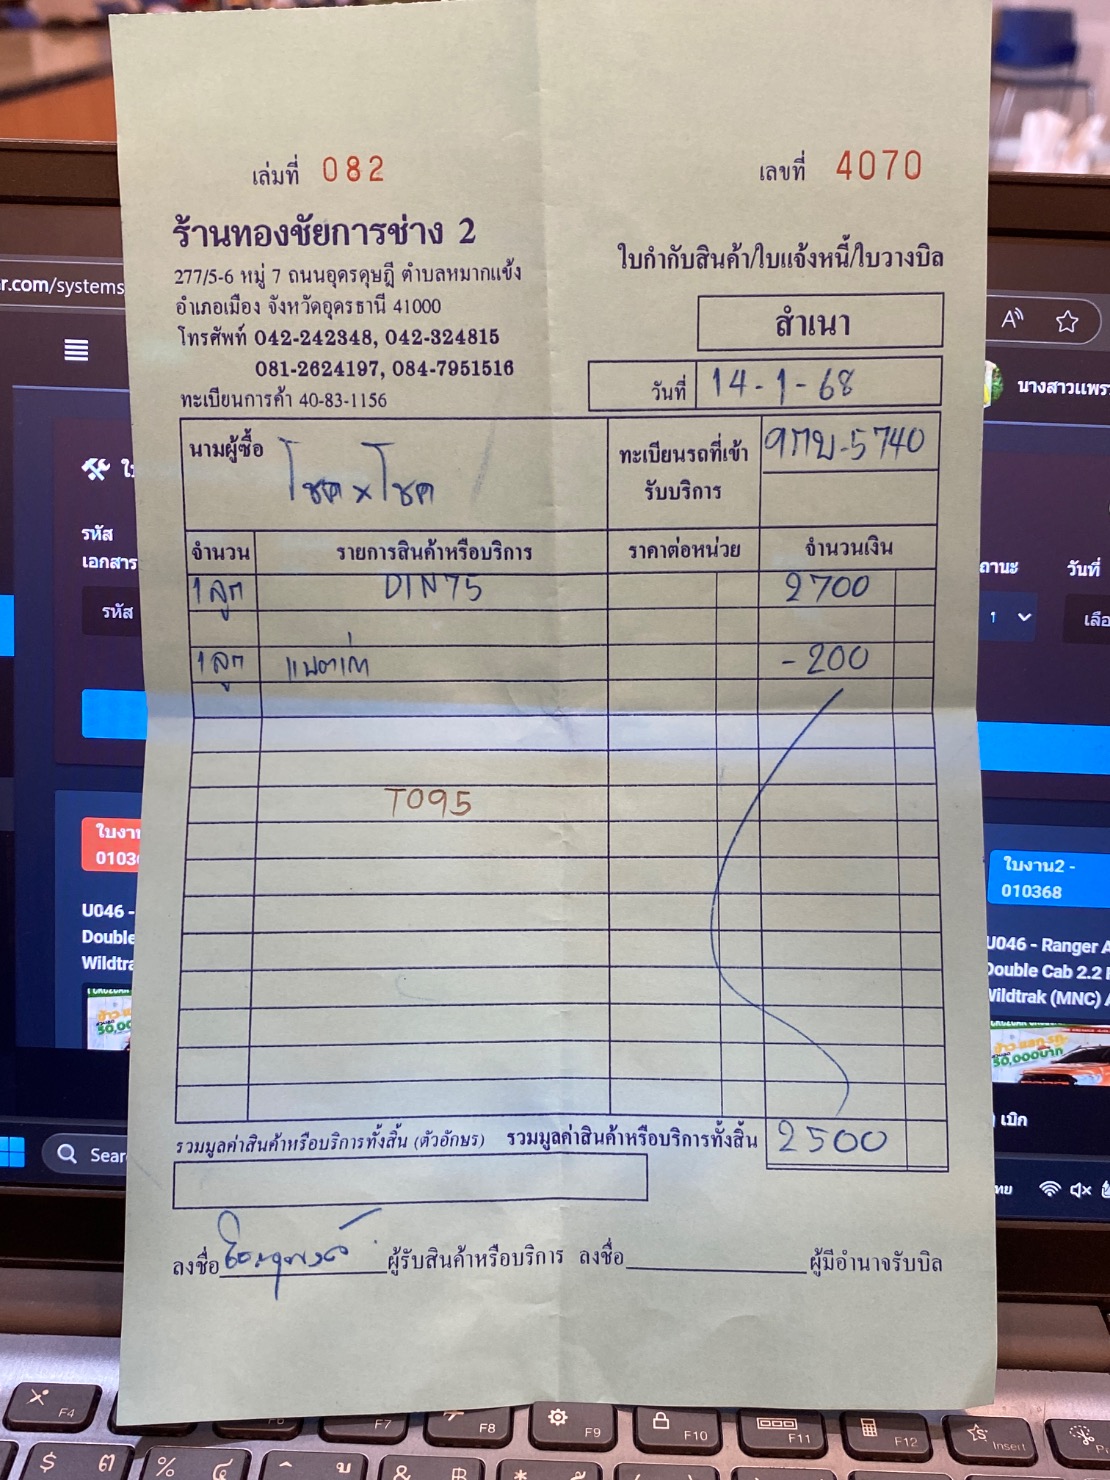 เล่มที่ 082
เลขที่ 4070
ร้านทองชัยการช่าง 2
277/5-6 หมู่ 7 ถนนอุดรดุษฎี ตำบลหมากแข้ง
อำเภอเมือง จังหวัดอุดรธานี 41000
โทรศัพท์ 042-242348, 042-324815
081-2624197, 084-7951516
ทะเบียนการค้า 40-83-1156
ใบกำกับสินค้า/ใบแจ้งหนี้/ใบวางบิล
สำเนา
วันที่ 14-1-68
นามผู้ซื้อ โชค x โชค
ทะเบียนรถที่เข้า
รับบริการ
5740
จำนวน รายการสินค้าหรือบริการ ราคาต่อหน่วย จำนวนเงิน
1 ลูก DIN75 2700
1 ลูก แบตเก่า -200
T095
รวมมูลค่าสินค้าหรือบริการทั้งสิ้น (ตัวอักษร) รวมมูลค่าสินค้าหรือบริการทั้งสิ้น 2500
ลงชื่อ ผู้รับสินค้าหรือบริการ ลงชื่อ ผู้มีอำนาจรับบิล
r.com/systems
นางสาวแพร
รหัส
เอกสาร
รหัส
วันที่
U046 -
Double
ใบงาน2 -
010368
U046 - Ranger
Double Cab 2.2
Wildtrak (MNC)
50,000บาท
เบิก
F4
F7
F8
F9
F10
F11
F12
Insert